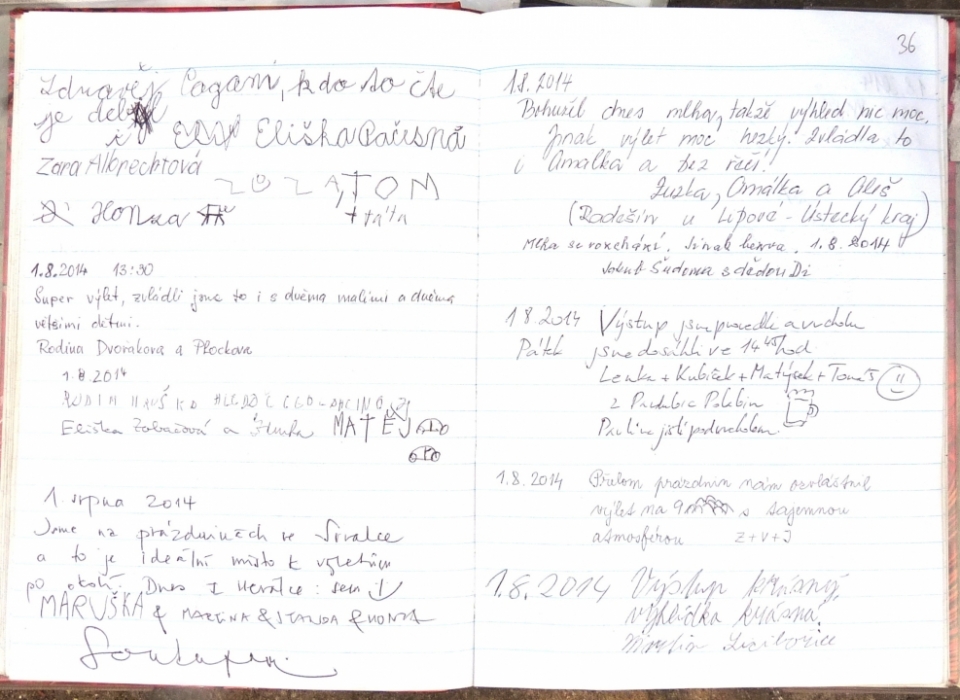 kdo to čte
je
i Eliška Pačisná
Zora Albrechtová
ZOZA, TOM
+ táta
Honza
1.8.2014 13:30
Super výlet, zvládli jsme to i s dvěma malími a dvěma
většími dětmi.
Rodina Dvořákova a Plockova
1.8.2014
Eliška a MATĚJ
1. srpna 2014
Jsme na prázdninách ve
a to je ideální místo k výletům
po okolí. Dnes z : sem
MARUŠKA & MARTINA & STANDA & HONZA
36
1.8.2014
Bohužil dnes mlhay, takže výhled nic moc.
Jinak výlet moc hezký. Zvládla to
i Amálka a bez řečí.
Zuzka, Amálka a Aleš
(Radešín u Lipové - Ústecký kraj)
Mlha se rozchází. Jinak 1.8.2014
Jakub s dědou
1 8.2014 Výstup jsme provedli a vrcholu
Pátek jsme dosáhli ve 14 45 hod
Lenka + Kubíček + Matýsek + Tomáš
z Pardubic Polabin
Pavlína jistí pod vrcholem.
1.8.2014 Přelom prázdnin nám ozvláštnil
výlet na s tajemnou
atmosférou Z+V+J
1.8.2014 Výstup krásný,
výhlídka krásná,